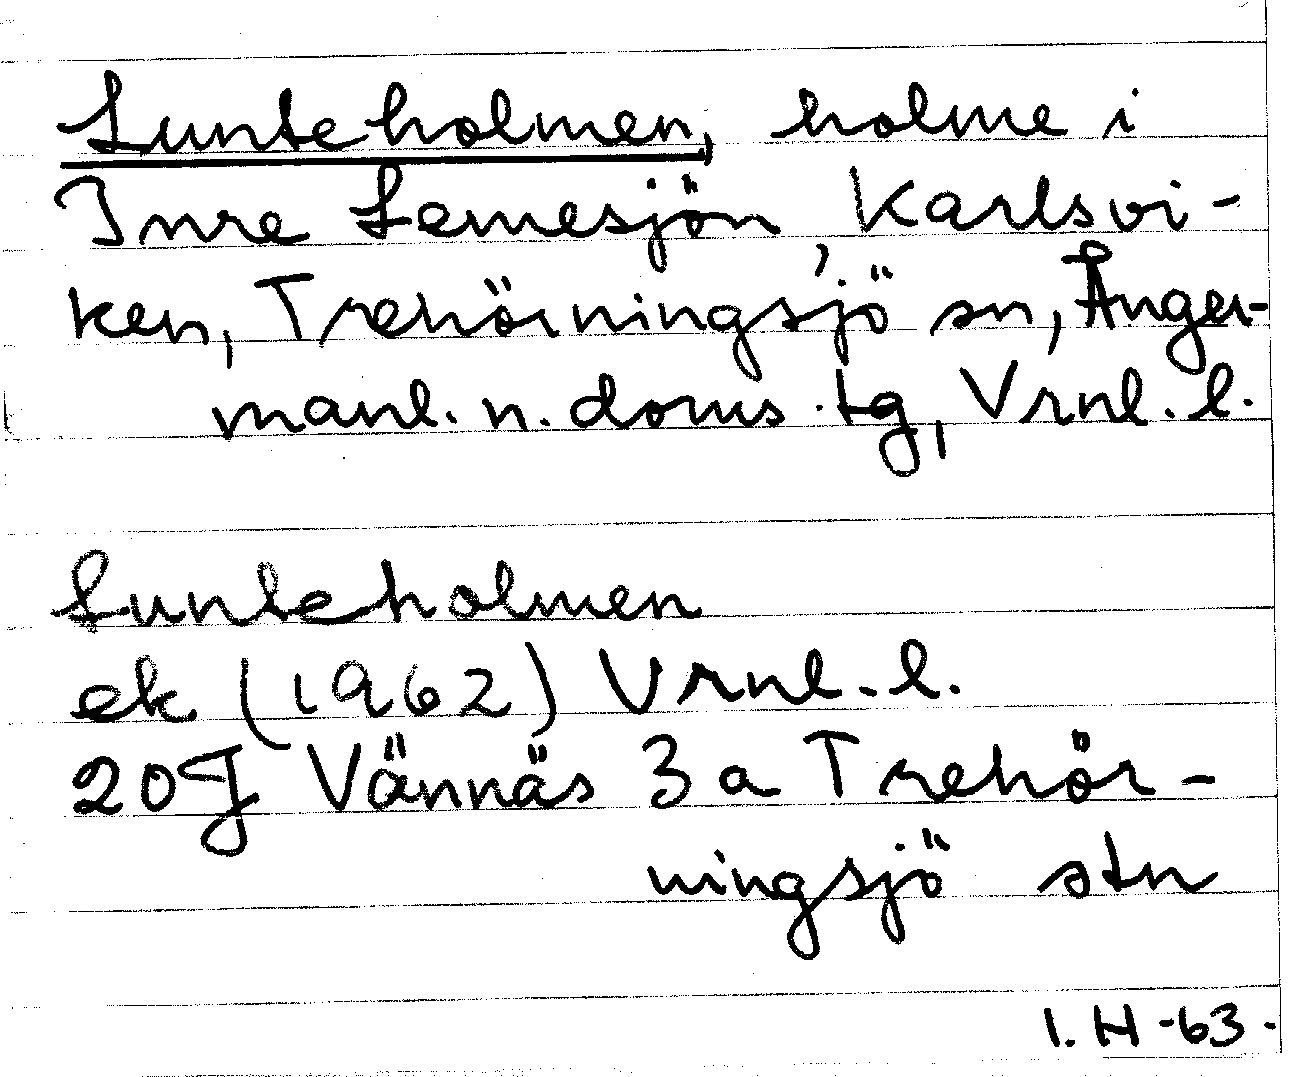 Lunteholmen, holme i
Inre Lemesjön, Karlsvi-
ken, Trehörningsjö sn, Ånger-
manl. n. doms. tg, Vrnl. l.
Lunteholmen
ek (1962) Vrnl. l.
20J Vännäs 3a Trehör-
ningsjö stn
I. H -63.